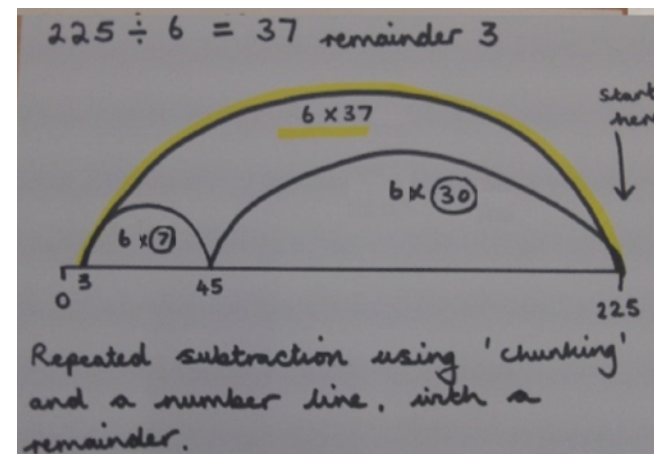 225 ÷ 6 = 37 remainder 3
start
here
6 x 37
6 x 30
6 x 7
0 3 45 225
Repeated subtraction using 'chunking'
and a number line, with a
remainder.